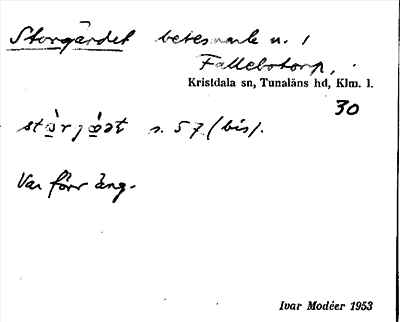 Storgärdet betesmark u. 1
Fallebotorp,
Kristdala sn, Tunaläns hd, Klm. l.
30
s. 57 (bis).
Var förr äng.
Ivar Modéer 1953